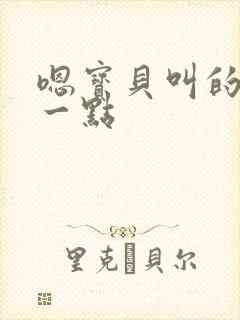 嗯寶貝叫的
一點
里克·貝尔